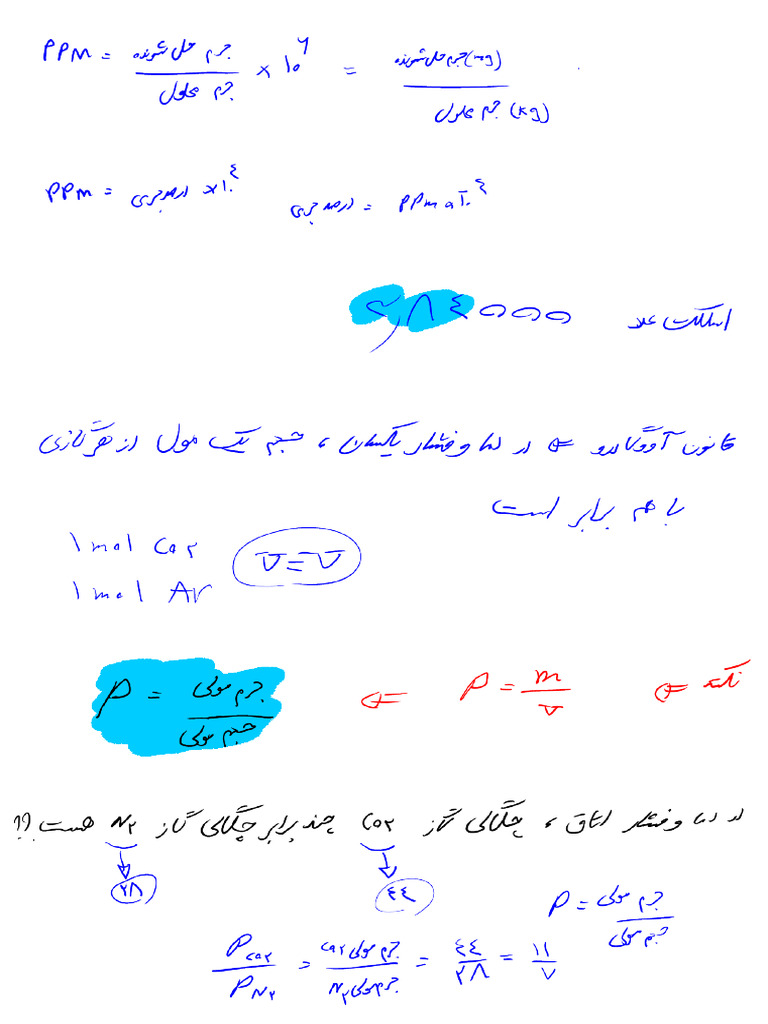 PPM = جرم حل شونده / جرم محلول × ۱۰^۶ = جرم حل شونده (mg) / جرم محلول (kg)
PPM = درصد جرمی × ۱۰^۴    درصد جرمی = PPM ۱۰^۴
۰۰۰ ۸۴
قانون آووگادرو ⇐ در دما و فشار یکسان ، حجم یک مول از هر گازی
با هم برابر است
1 mol CO۲
V = V
1 mol Ar
نکته ⇐ ρ = m / V ⇐ ρ = جرم مولی / حجم مولی
در دما و فشار اتاق ، چگالی گاز CO۲ چند برابر چگالی گاز N۲ هست ؟؟
۴۴ ۲۸
ρ = جرم مولی / حجم مولی
ρCO۲ / ρN۲ = جرم مولی CO۲ / جرم مولی N۲ = ۴۴ / ۲۸ = ۱۱ / ۷